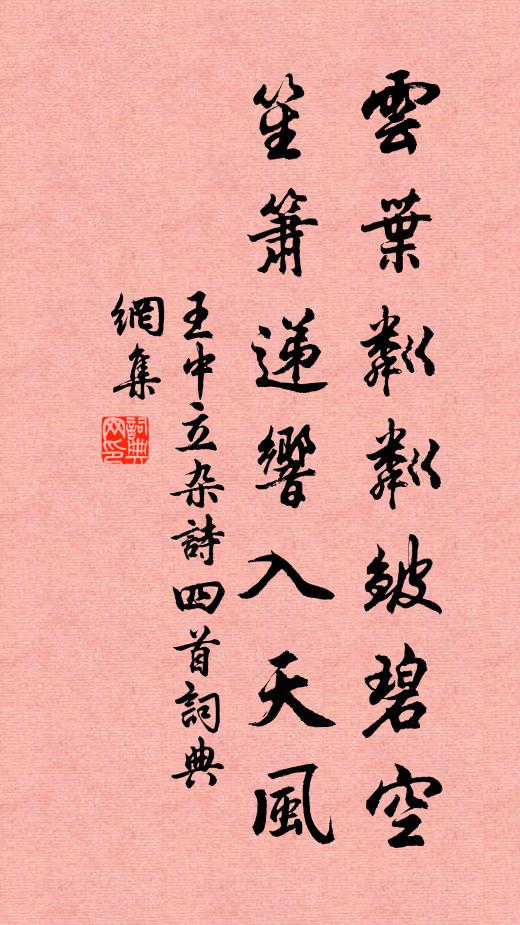 雲葉粼粼皺碧空
笙簫递響入天風
王中立杂詩四首詞典
網集
詞典
网印